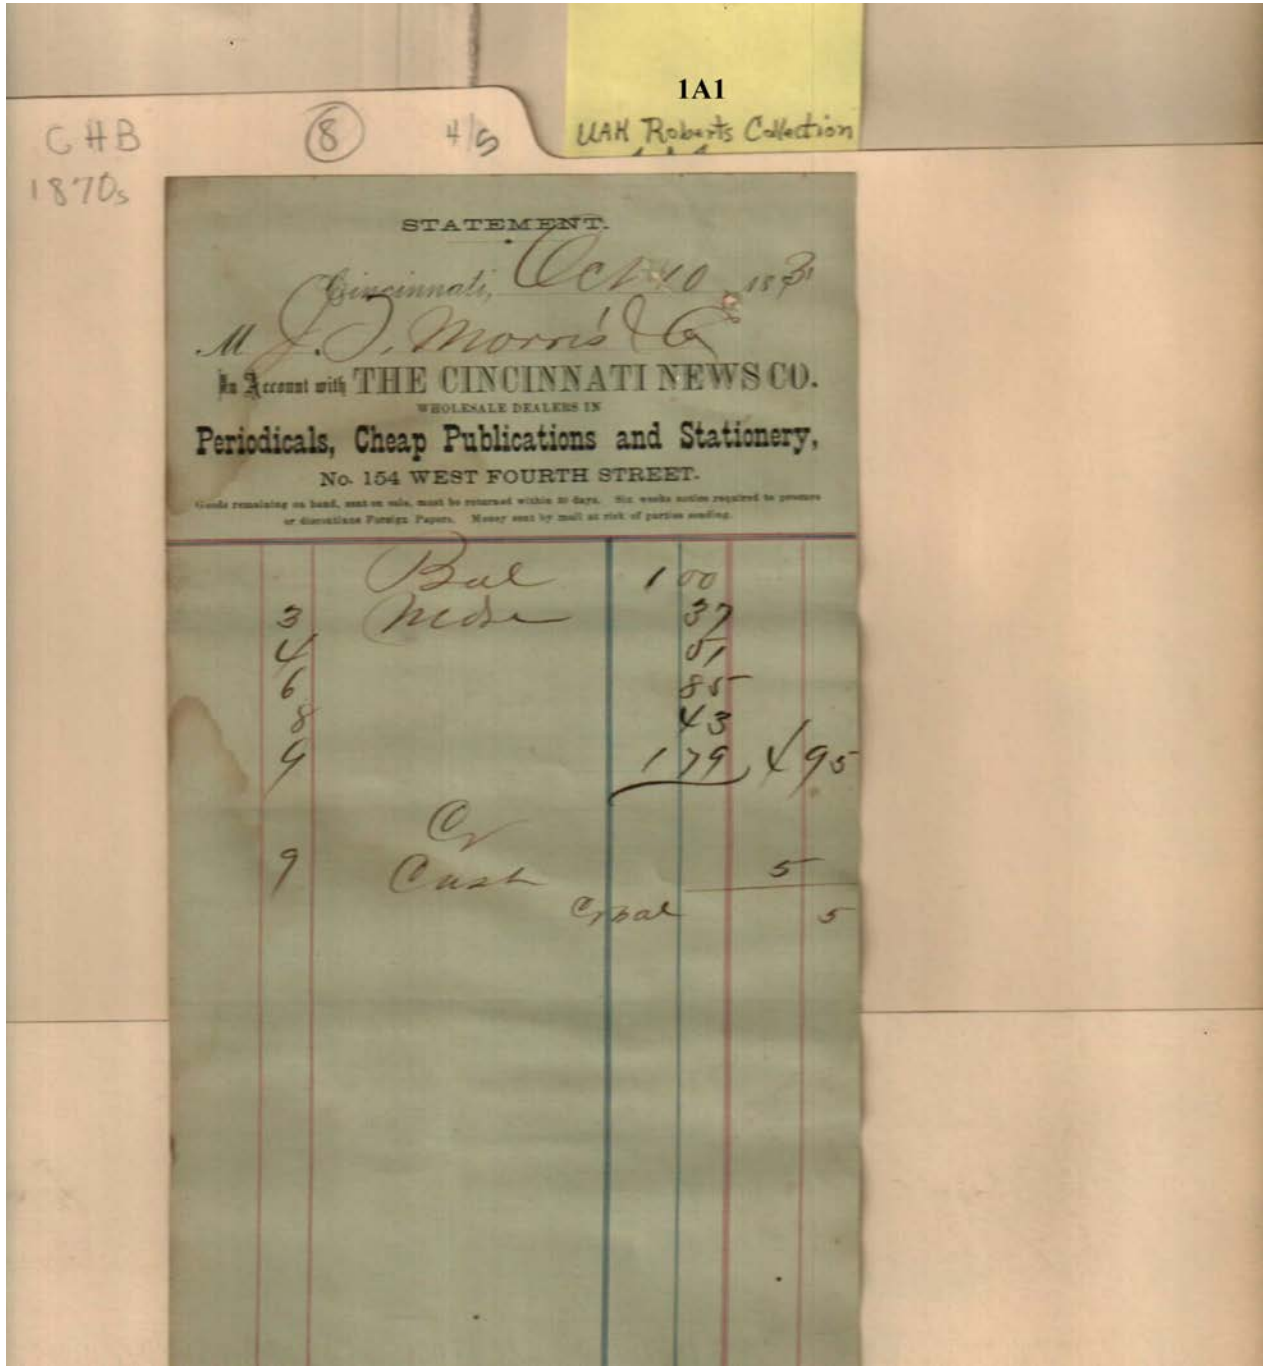 1A1
UAH Roberts Collection
CHB 8 4/5
1870s
STATEMENT.
Cincinnati, Oct 10 187
M J. T. Morris & Co
In Account with THE CINCINNATI NEWS CO.
WHOLESALE DEALERS IN
Periodicals, Cheap Publications and Stationery,
No. 154 WEST FOURTH STREET.
Goods remaining on hand, sent on sale, must be returned within 30 days. Six weeks notice required to procure
or discontinue Foreign Papers. Money sent by mail at risk of parties sending.
Bal 1 00
3 Mdse 37
4 51
6 85
8 43
9 1 79 4 95
Cr
9 Cash 5
Cr bal 5